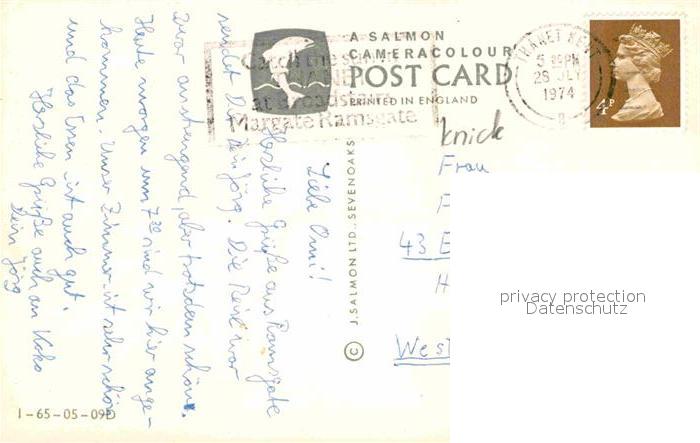 A SALMON
CAMERACOLOUR
POST CARD
PRINTED IN ENGLAND
Catch the sun in
THANET
at Broadstairs
Margate Ramsgate
THANET KENT
5 PM
28 JLY
1974
B
4P
knick
Liebe Omi!
Herzliche Grüße aus Ramsgate
sendet Dir Dein Jörg. Die Reise war
zwar anstrengend, aber trotzdem schön.
Heute morgen um 7 30 sind wir hier ange-
kommen. Unser Zimmer ist sehr schön
und das Essen ist auch gut.
Herzliche Grüße auch an Koko
Dein Jörg
© J. SALMON LTD., SEVENOAKS
Frau
F
43 E
H
West
privacy protection
Datenschutz
1-65-05-09D